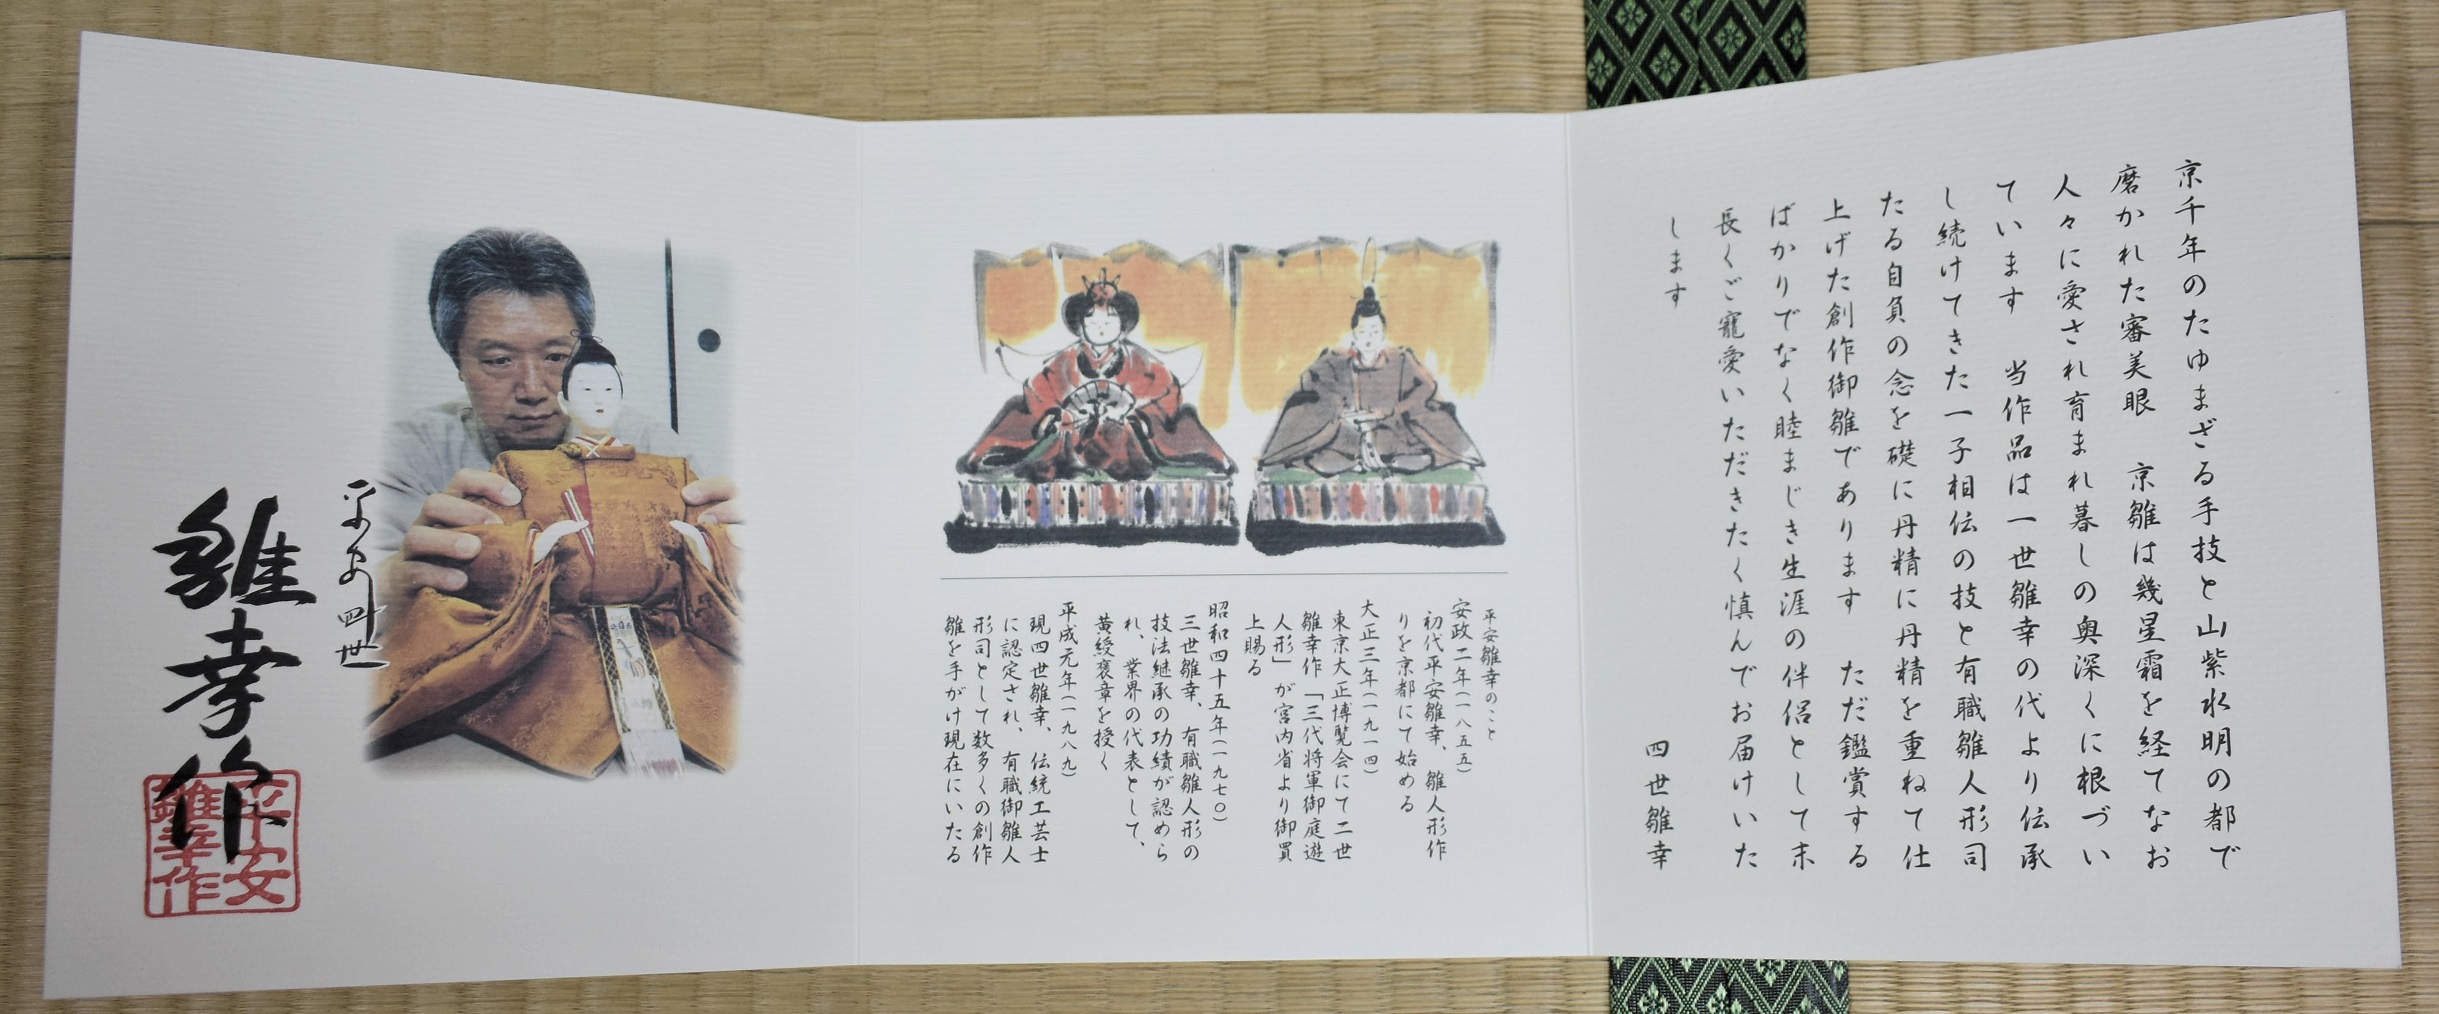 京千年のたゆまざる手技と山紫水明の都で
磨かれた審美眼　京雛は幾星霜を経てなお
人々に愛され育まれ暮しの奥深くに根づい
ています　当作品は一世雛幸の代より伝承
し続けてきた一子相伝の技と有職雛人形司
たる自負の念を礎に丹精に丹精を重ねて仕
上げた創作御雛であります　ただ鑑賞する
ばかりでなく睦まじき生涯の伴侶として末
長くご寵愛いただきたく慎んでお届けいた
します
四世雛幸
平安雛幸のこと
安政二年(一八五五)
初代平安雛幸、雛人形作
りを京都にて始める
大正三年(一九一四)
東京大正博覧会にて二世
雛幸作「三代将軍御庭遊
人形」が宮内省より御買
上賜る
昭和四十五年(一九七〇)
三世雛幸、有職雛人形の
技法継承の功績が認めら
れ、業界の代表として、
黄綬褒章を授く
平成元年(一九八九)
現四世雛幸、伝統工芸士
に認定され、有職御雛人
形司として数多くの創作
雛を手がけ現在にいたる
平安四世
雛幸作
平安
雛幸作